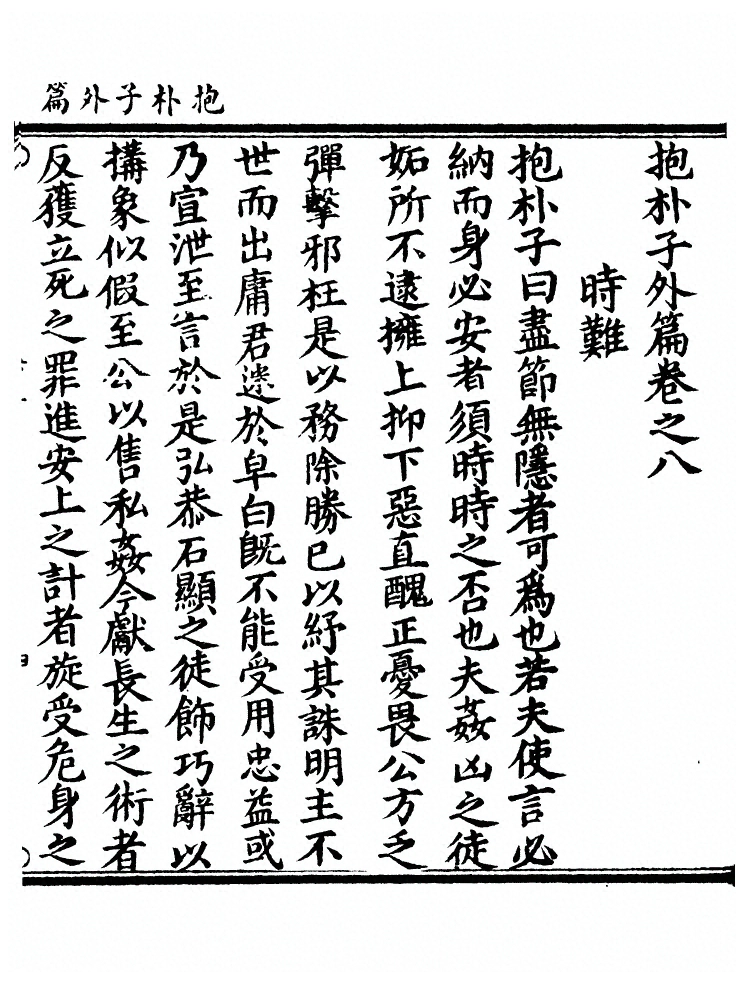 抱朴子外篇
抱朴子外篇卷之八
時難
抱朴子曰盡節無隱者可爲也若夫使言必
納而身必安者須時時之否也夫姦凶之徒
妬所不逮擁上抑下惡直醜正憂畏公方之
彈擊邪枉是以務除勝已以紓其誅明主不
世而出庸君迷於皁白旣不能受用忠益或
乃宣泄至言於是弘恭石顯之徒飾巧辭以
搆象似假至公以售私姦今獻長生之術者
反獲立死之罪進安上之計者旋受危身之